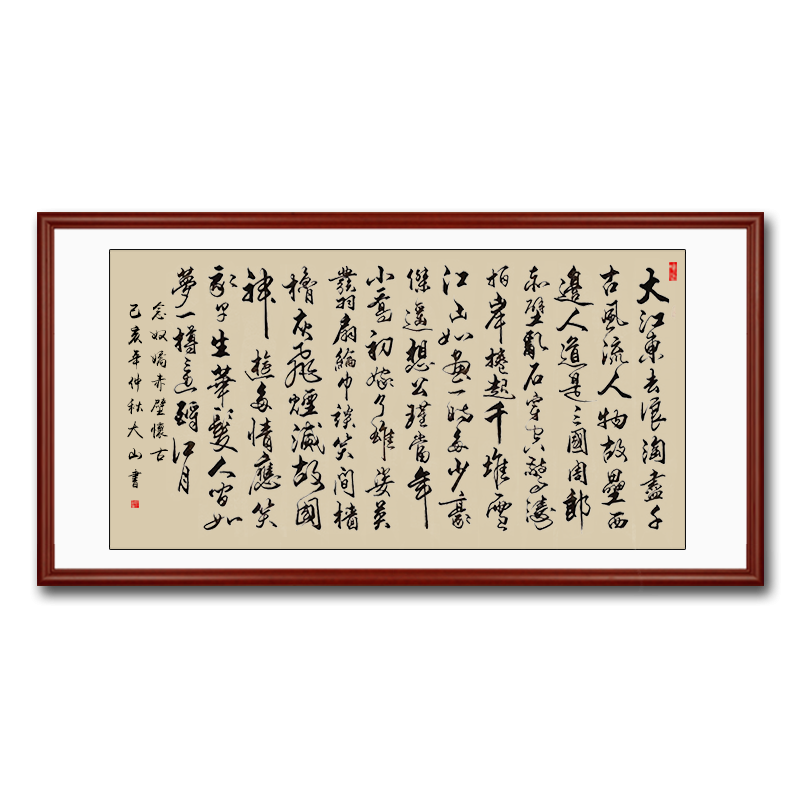 大江東去浪淘盡千
古風流人物故壘西
邊人道是三國周郎
赤壁亂石穿空驚濤
拍岸捲起千堆雪
江山如畫一時多少豪
傑遙想公瑾當年
小喬初嫁了雄姿英
發羽扇綸巾談笑間檣
櫓灰飛煙滅故國
神遊多情應笑
我早生華髮人間如
夢一樽還酹江月
念奴嬌赤壁懷古
己亥年仲秋大山書